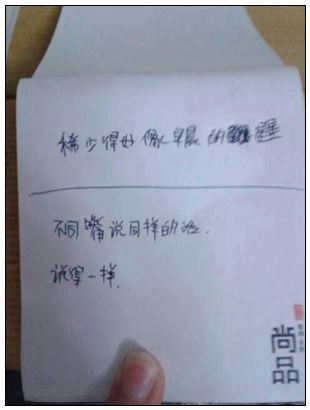 稀少得好像早晨的
不同嘴说同样的话.
说得一样.
尚品